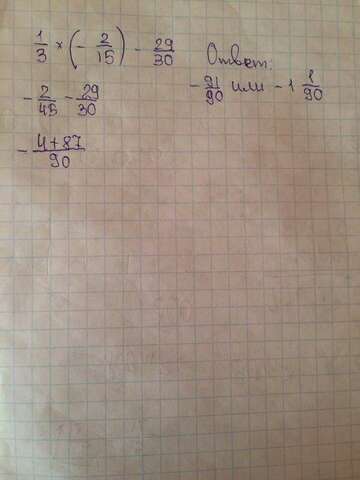 1/3 × (- 2/15) - 29/30
- 2/45 - 29/30
- 4+87/90
Ответ:
- 91/90 или - 1 1/90